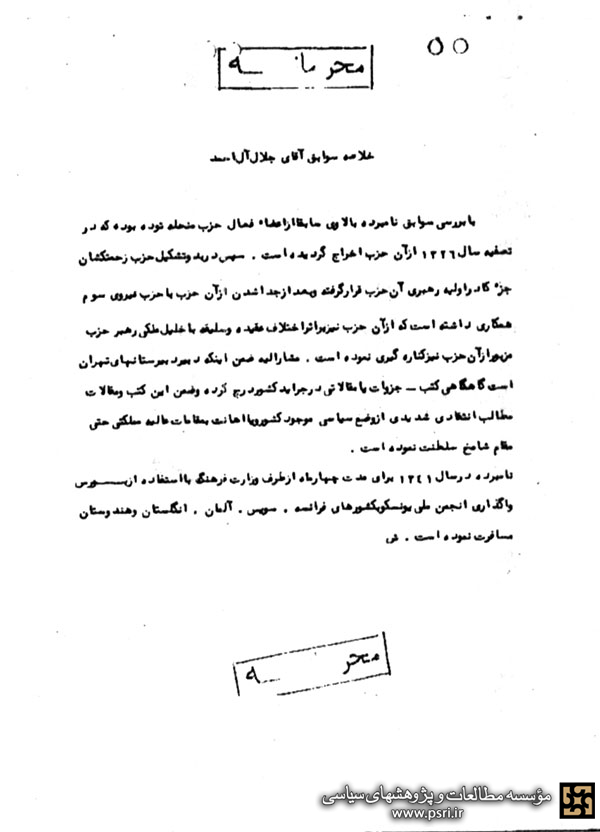 محرمانه
خلاصه سوابق آقای جلال آل احمد
با بررسی سوابق نامبرده بالا وی سابقا از اعضاء فعال حزب منحله توده بوده که در
تصفیه سال ۱۳۲۶ از آن حزب اخراج گردیده است . سپس در بدو تشکیل حزب زحمتکشان
جزء کادر اولیه رهبری آن حزب قرار گرفته و بعد از جدا شدن از آن حزب با حزب نیروی سوم
همکاری داشته است که از آن حزب نیز بر اثر اختلاف عقیده و سلیقه با خلیل ملکی رهبر حزب
مزبور از آن حزب نیز کناره گیری نموده است . مشارالیه ضمن اینکه دبیر دبیرستانهای تهران
است گاهگاهی کتب ـ جزوات یا مقالاتی در جراید کشور درج کرده و ضمن این کتب و مقالات
مطالب انتقادی شدیدی از وضع سیاسی موجود کشور و یا اهانت بمقامات عالیه مملکتی حتی
مقام شامخ سلطنت نموده است .
نامبرده در سال ۱۳۴۱ برای مدت چهار ماه از طرف وزارت فرهنگ با استفاده از بورس
واگذاری انجمن ملی یونسکو بکشورهای فرانسه . سویس . آلمان . انگلستان و هندوستان
مسافرت نموده است . ش
محرمانه
مؤسسه مطالعات و پژوهشهای سیاسی
www.psri.ir